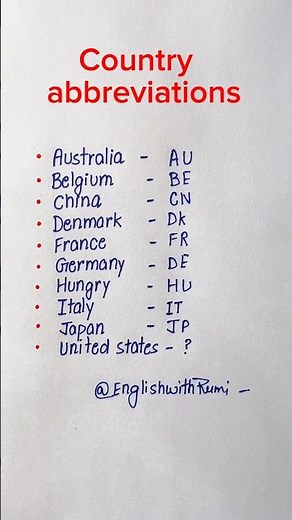 Country
abbreviations
• Australia - AU
• Belgium - BE
• China - CN
• Denmark - Dk
• France - FR
• Germany - DE
• Hungry - HU
• Italy - IT
• Japan - JP
• United states - ?
@EnglishwithRumi -